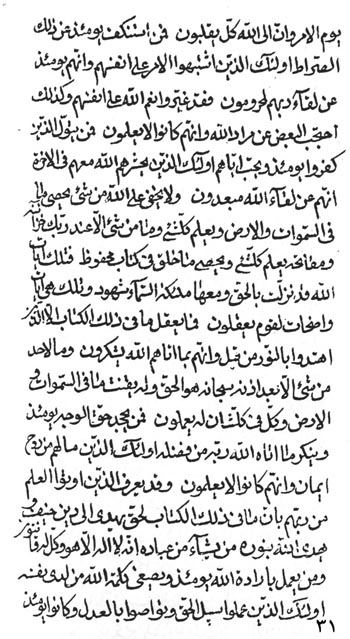 يوم الامر وانّ الى الله كلّ يقلبون فمن استنكف يومئذ عن ذلك
الصّراط اولئك الذين اشتبهوا الامر على انفسهم وانّهم يومئذ
عن لقاء ربهم لمحرومون فقد غيّر وانعم الله على انفسهم وكذلك
احتجب البعض عن مراد الله وانّهم كانوا لا يعلمون فمن يتولّ الذين
كفروا يومئذ ويحبّ اياهم اولئك الذين يحشرهم الله معهم فى الاخرة
انّهم عن لقاء الله مبعدون ولا يخفى على الله من شئ يحصى ما
فى السموات والارض ويعلم كلّ شئ وما من شئ الّا عند ربّك خزائنه
ومفاتحه يعلم كلّ شئ ويحصى ما خلق فى كتاب محفوظ فتلك آيات
الله قد نزلت بالحق ومعها ملئكة السّماء شهود وذلك هى آيات
واضحات لقوم يعقلون فما يعقل ما فى ذلك الكتاب الّا الذين
اهتدوا بالنّور من قبل وانّهم بما اتاهم الله يشكرون وما لاحد
من شئ الّا بعد اذنه سبحانه هو الحق وله يقنت ما فى السّموات و
الارض وكلّ فى كلّ شان له يعملون فمن يجحد حقّ الوحيد يومئذ
وينكر ما اتاه الله ربّه من فضله اولئك الذين ما لهم من روح
ايمان وانّهم كانوا لا يعلمون وقد يعرف الذين اوتوا العلم
من ربهم بانّ ما فى ذلك الكتاب لحق يهدى الى دين حنيف و
يهدى الله بنوره من يشآء من عباده انّه لا اله الّا هو وكلّ
ومن يعمل بارادة الله يومئذ ويصغى بكلمة الله من لدى نفسه
اولئك الذين عملوا سبل الحق وتواصوا بالعدل وكانوا يومئذ
٣١